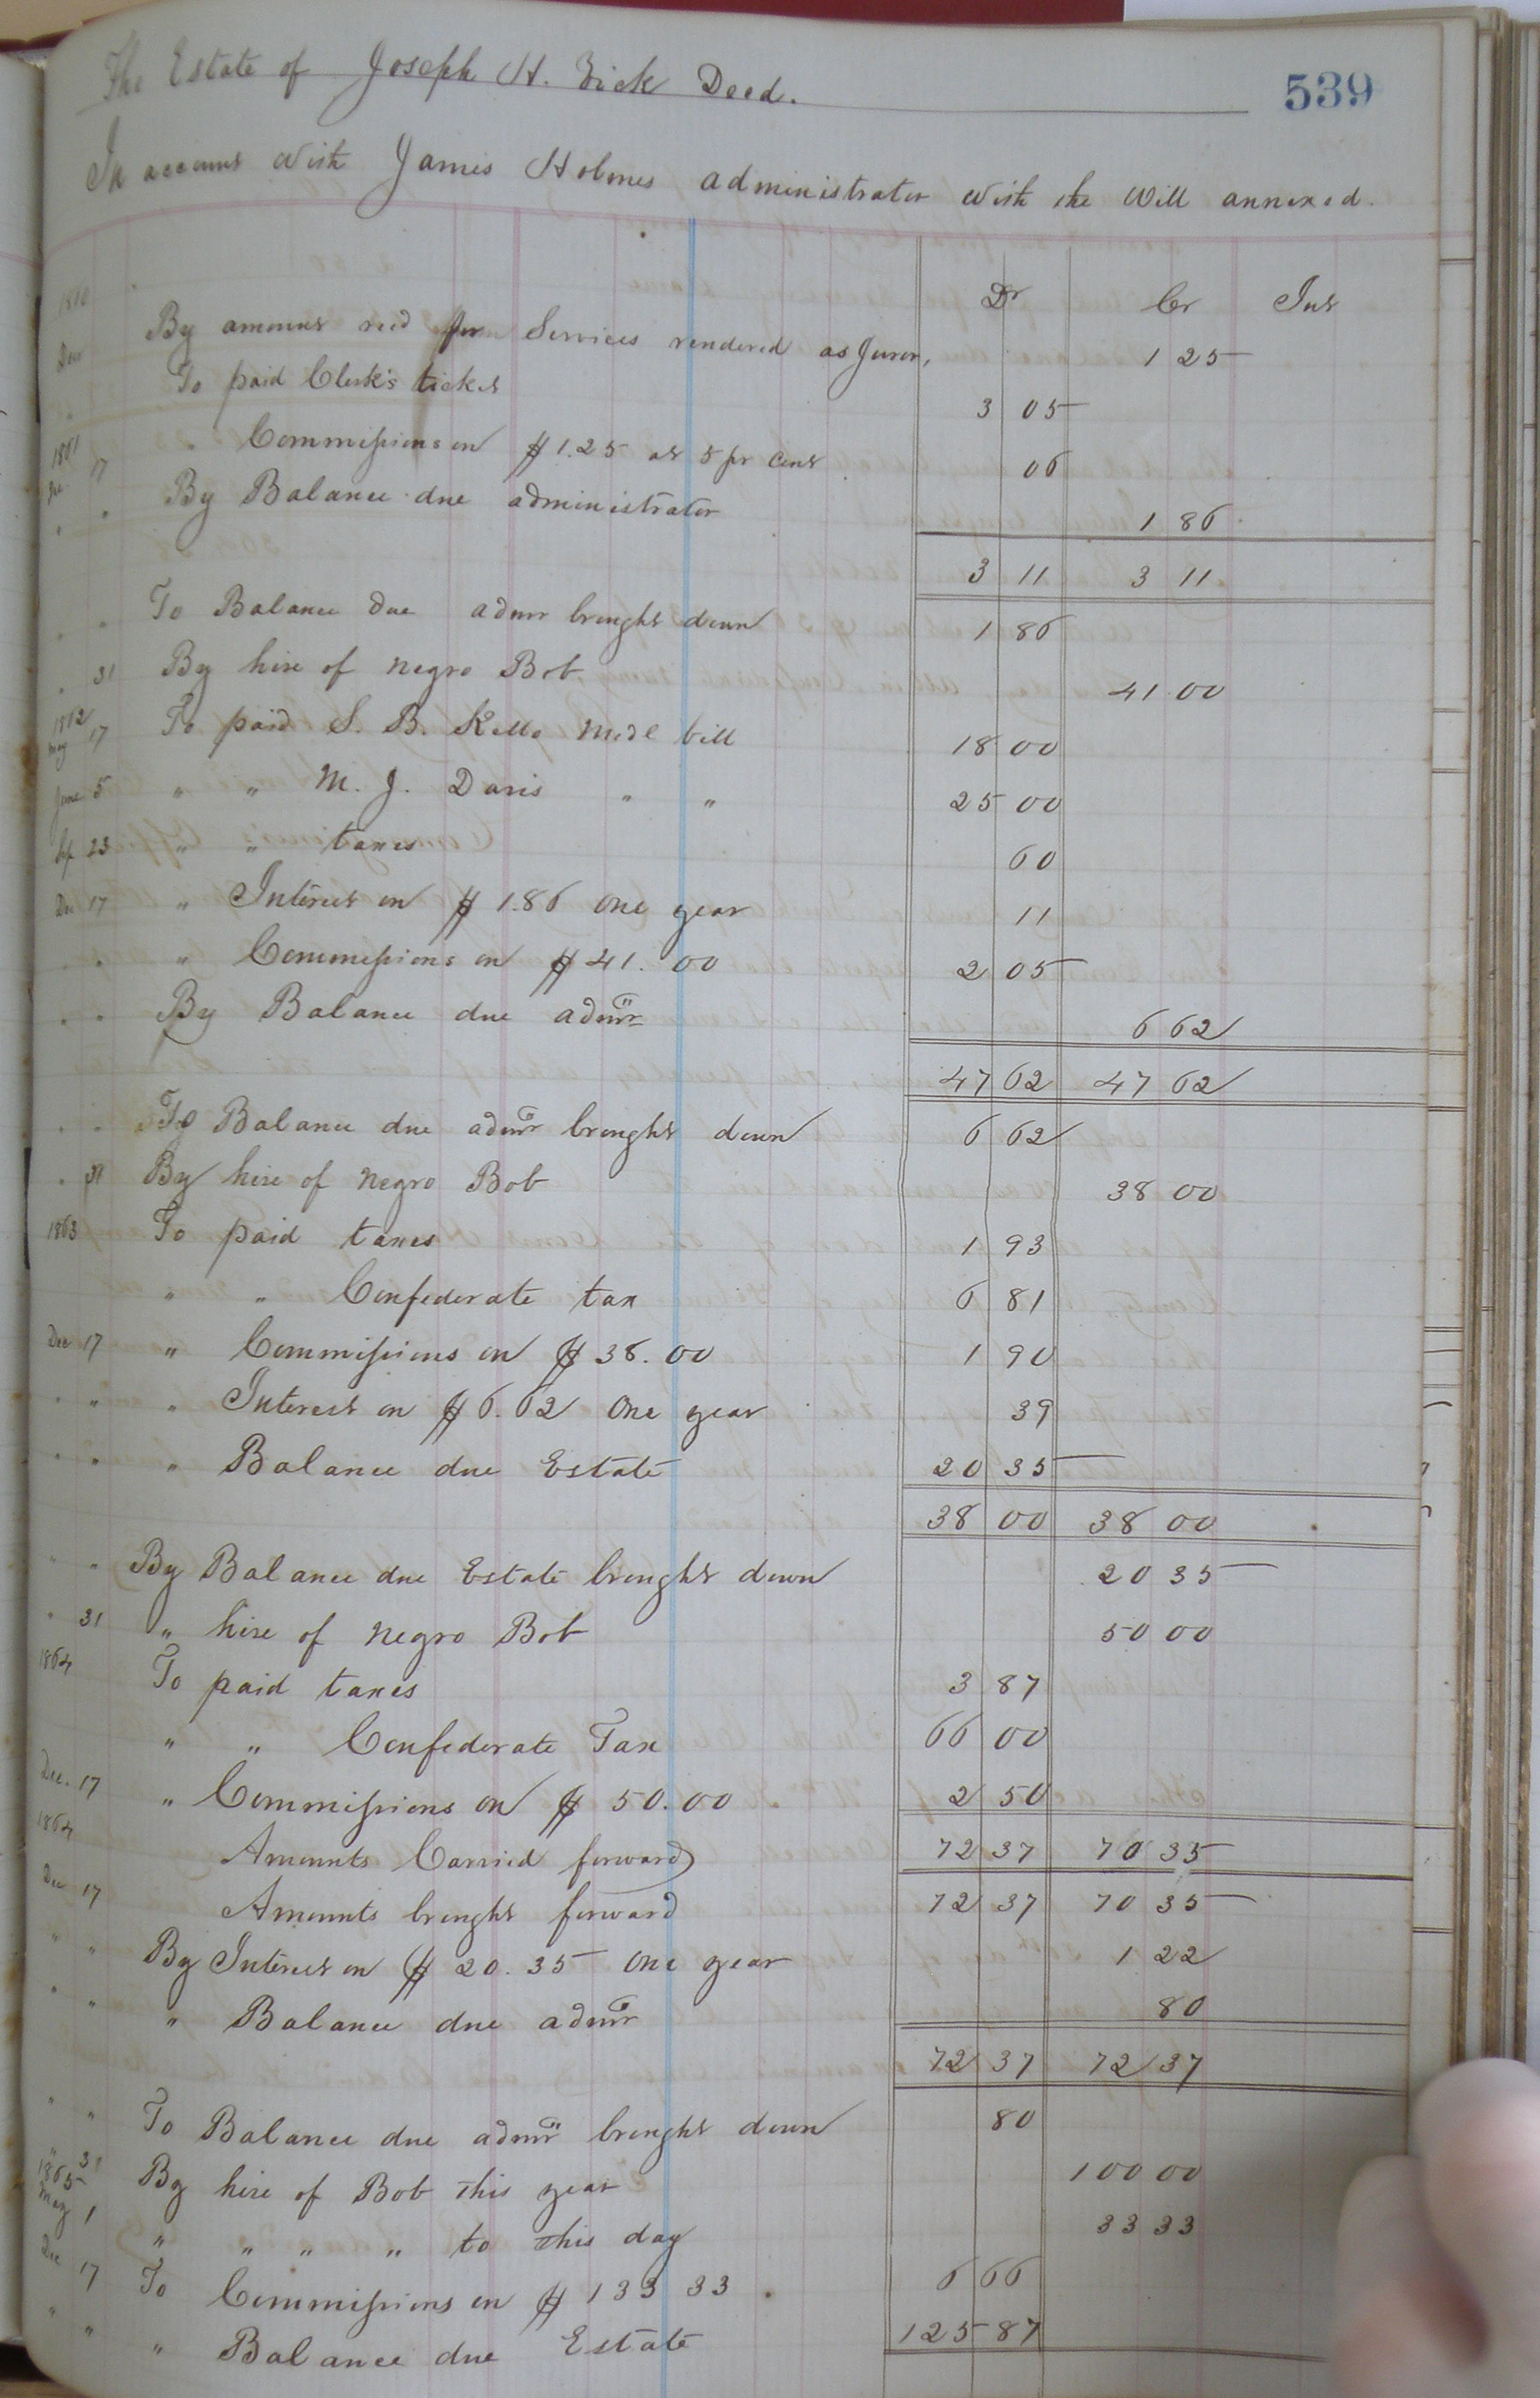 The Estate of Joseph H. Vick Decd. 539
In account with James Holmes administrator with the Will annexed.
Dr Cr Int
1860
Dec By amount recd for Services rendered as Juror, 1 25
To paid Clerk's ticket 3 05
1861
Dec 17 " Commissions on $1.25 at 5 pr cent 06
" " By Balance due administrator 1 86
3 11 3 11
" " To Balance due admr brought down 1 86
" 31 By hire of negro Bob 41 00
1862
May 17 To paid S. B. Kello Medl bill 18 00
June 5 " " M. J. Davis " " 25 00
Sep 23 " " taxes 60
Dec 17 " Interest on $ 1.86 one year 11
" " " Commissions on $ 41.00 2 05
" " By Balance due admr 6 62
47 62 47 62
" " To Balance due admr brought down 6 62
" 31 By hire of negro Bob 38 00
1863 To paid taxes 1 93
" " Confederate tax 6 81
Dec 17 " Commissions on $ 38.00 1 90
" " " Interest on $ 6.62 one year 39
" " " Balance due Estate 20 35
38 00 38 00
" " By Balance due Estate brought down 20 35
" 31 " hire of negro Bob 50 00
1864 To paid taxes 3 87
" " Confederate Tax 66 00
Dec. 17 " Commissions on $ 50.00 2 50
1864 Amounts Carried forward 72 37 70 35
Dec 17 Amounts brought forward 72 37 70 35
" " By Interest on $ 20.35 one year 1 22
" " " Balance due admr 80
72 37 72 37
" " To Balance due admr brought down 80
" 31 By hire of Bob this year 100 00
1865
May 1 " " " " to this day 33 33
Dec 17 To Commissions on $ 133 33 6 66
" " " Balance due Estate 125 87